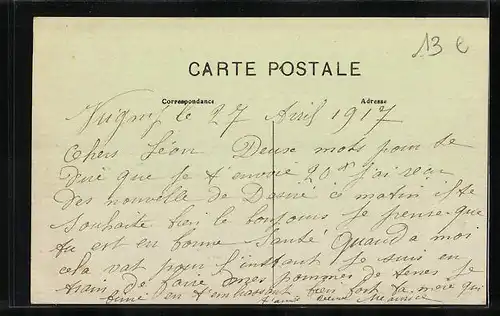 13 €
CARTE POSTALE
Correspondance
Adresse
le 27 Avril 1917
Chers Léon Deuse mots pour te
dire que je t envoie 20 f j'ai reçu
des nouvelle de Desiré ce matin il te
souhaite bien le bonjours je pense que
tu est en bonne Santé Quand a moi
cela vat pour l'instant je suis en
train de faire mes pommes de terres je
finie en t'embrassant bien fort ta mère qui
t'aime